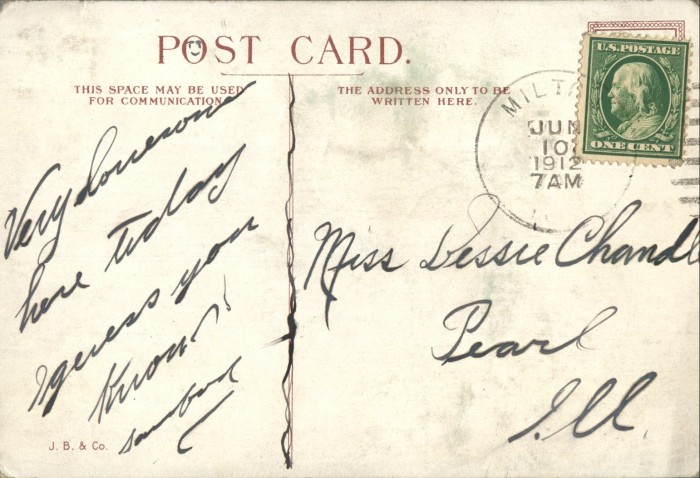 POST CARD.
THIS SPACE MAY BE USED
FOR COMMUNICATION
THE ADDRESS ONLY TO BE
WRITTEN HERE.
U.S. POSTAGE
ONE CENT
JUN
10
1912
7AM
Very lonesome
here today
I guess you
Know
Miss Dessie Chandl
Pearl
Ill.
J. B. & Co.